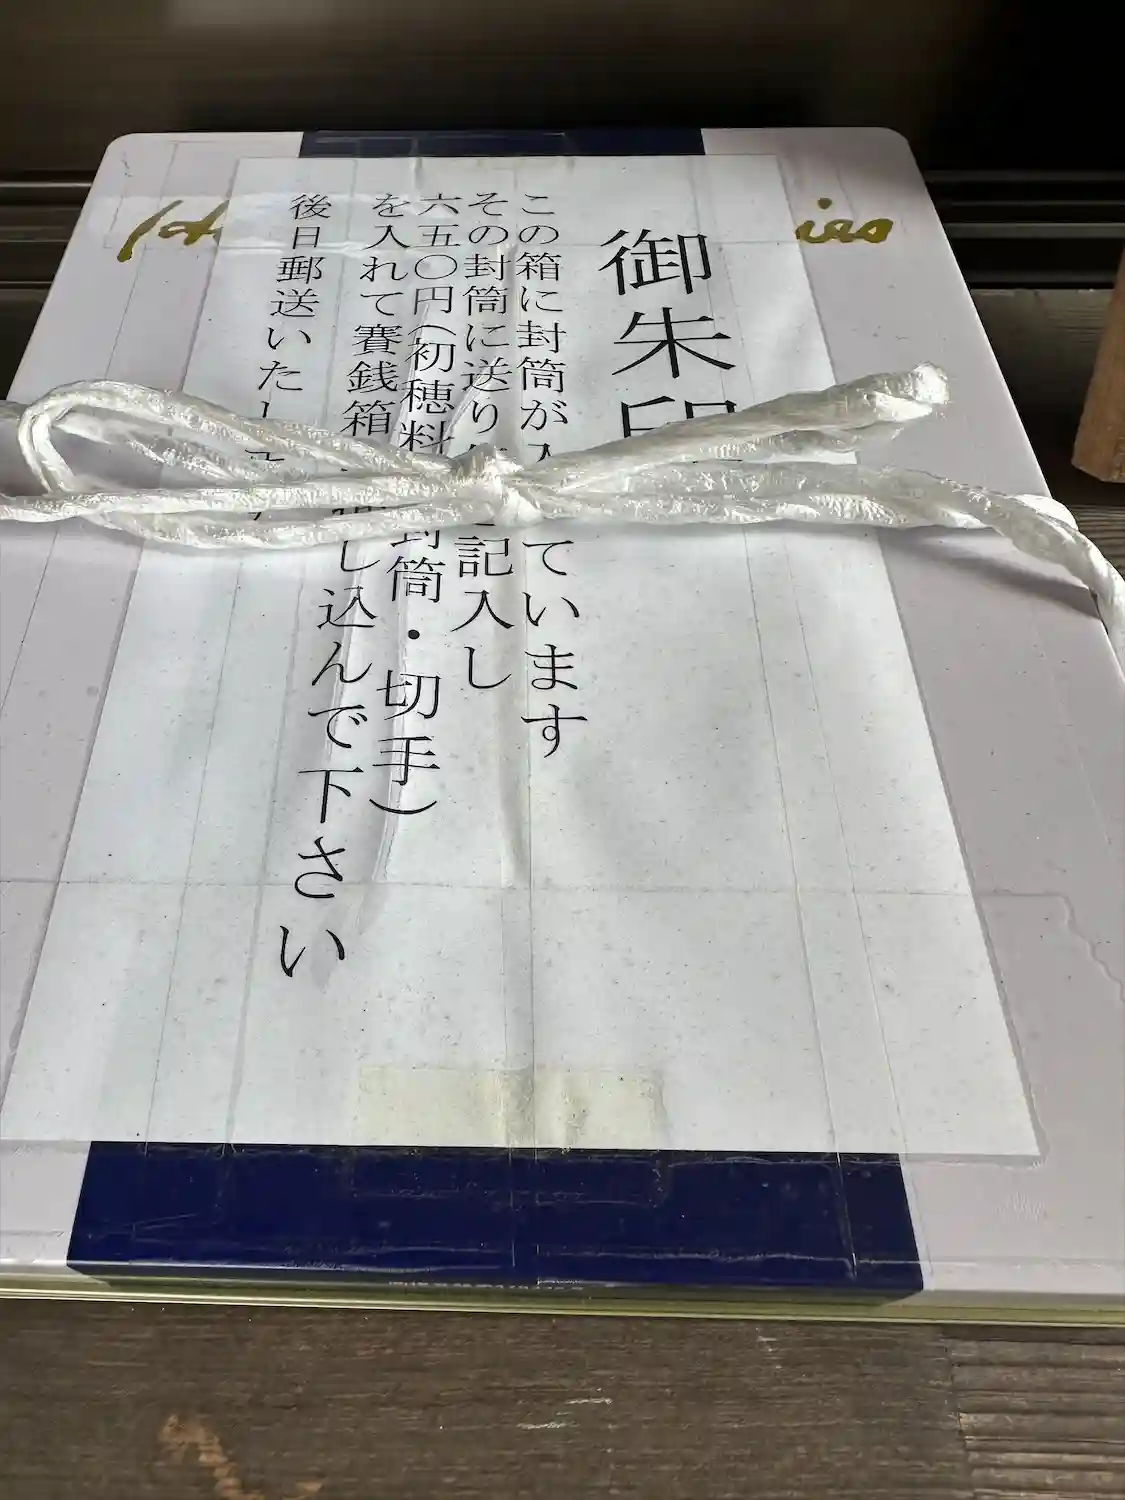 御朱印
この箱に封筒が入っています
その封筒に送り先を記入し
六五〇円(初穂料・封筒・切手)
を入れて賽銭箱に押し込んで下さい
後日郵送いたします